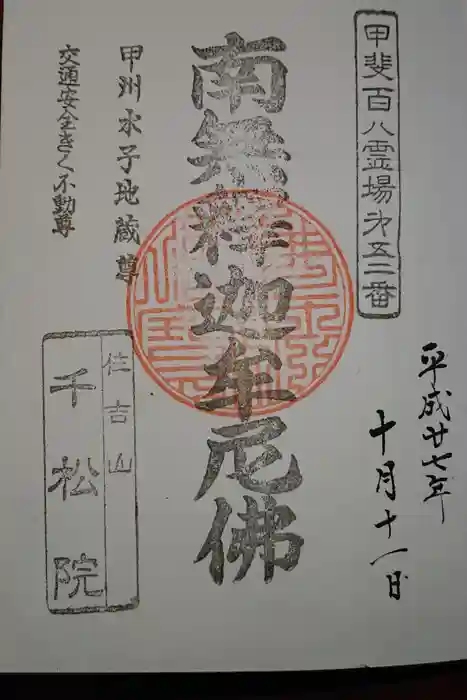 甲斐百八霊場第五二番
平成廿七年
十月十一日
南無釋迦牟尼佛
甲州水子地蔵尊
交通安全きく不動尊
住吉山
千松院